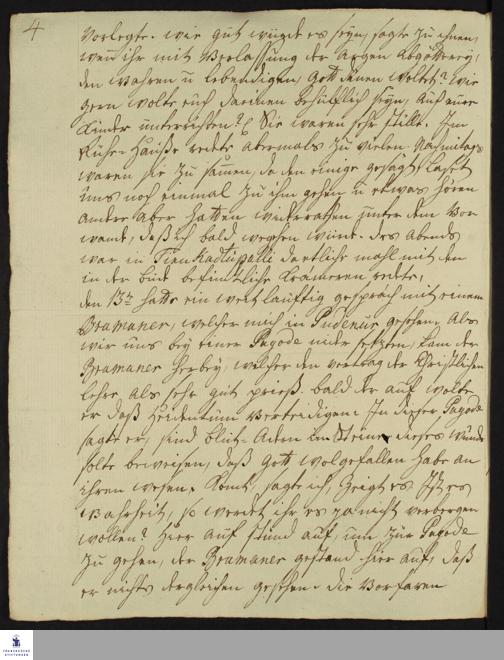 4
Vorlegte. wie gut würde es seyn, sagte zu ihnen,
wen ihr mit Verlassung der Argen Abgötterey,
den wahren u lebendigen Gott dienen woltet? wie
gern wolte euch darinen behülflich seyn, auch eure
Kinder unterrichten? Sie waren sehr stille. Im
Ruhe-Hause redete abermals zu vielen. Nachmitags
waren sie zu samen, da den einige gesagt: Laset
uns noch einmal zu ihm gehen u etwas hören
andere aber hatten wiederrathen unter dem Vor
wande, daß ich bald weggehen würde. des Abends
war in Tirukadtupalli da etliche mahl mit den
in der Bude befindtliche Krämeren redete,
den 13ten hatte ein weitläuftig gespräch mit einem
Bramaner, welcher mich in Pudenur gesehen. Als
wir uns bey einer Pagode nieder setzten, kam der
Bramaner herbey, welcher den vortrag der Christlichen
Lehre als sehr gut prieß. bald darauf wolte
er daß Heidentum Vertheidigen. In dieser Pagode
sagte er, sind blut-Adern im Steine, dieses wunder
solte beweisen, daß Gott wolgefallen habe an
ihren wesen. Komt, sagte ich, zeigt es. Ist es
wahrheit, so werdet ihr es ja nicht verbergen
wollen? Hier auf stund auf, um zur Pagode
zu gehen, der Bramaner gestand hier auf, daß
er nichts dergleichen gesehen. die Vorfaren
FRANCKESCHE
STIFTUNGEN